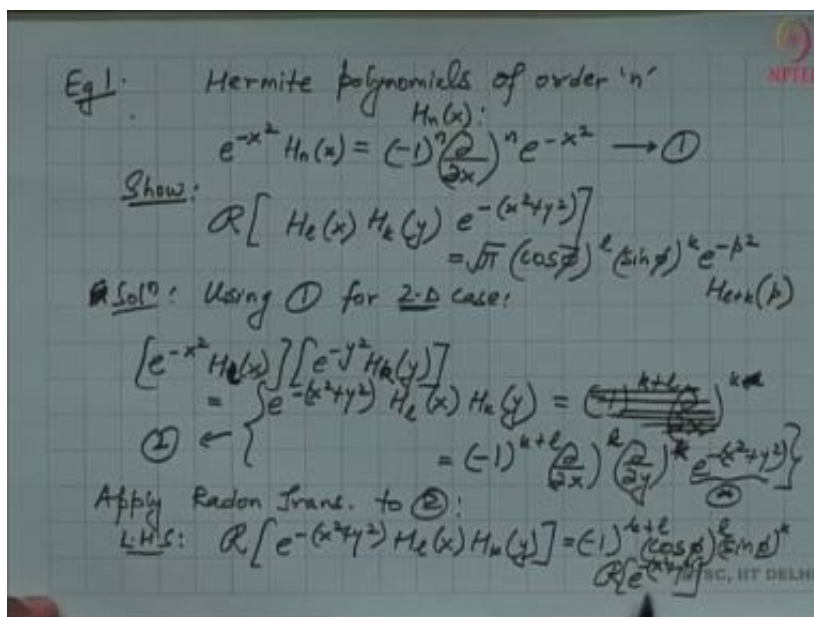 NPTEL
Eg 1. Hermite polynomials of order 'n'
Hn(x):
e^{-x²} Hn(x) = (-1)^n (∂/∂x)^n e^{-x²} → ①
Show:
R[ H_l(x) H_k(y) e^{-(x²+y²)} ]
= √π (cosφ)^l (sinφ)^k e^{-p²}
H_{l+k}(p)
Solⁿ: Using ① for 2-D case:
[e^{-x²} H_l(x)] [e^{-y²} H_k(y)]
= { e^{-(x²+y²)} H_l(x) H_k(y) = 
② ← = (-1)^{k+l} (∂/∂x)^l (∂/∂y)^k e^{-(x²+y²)} }
Apply Radon Trans. to ②:
L.H.S: R[ e^{-(x²+y²)} H_l(x) H_k(y) ] = (-1)^{k+l} (cosφ)^l (sinφ)^k
R[e^{-(x²+y²)}]
SC, IIT DELHI